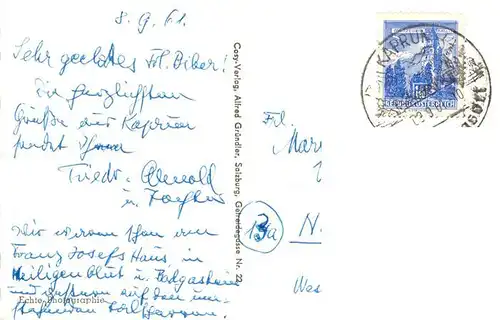 8. 9. 61.
Sehr geehrtes Frl. Biber!
Die herzlichsten
Grüße aus Kaprun
sendet Ihnen
Friedr.
u.
Wir waren schon am
Franz Josefs Haus, in
Heiligenblut u. Badgastein
und auf den
Echte Photographie
Cosy-Verlag, Alfred Gründler, Salzburg, Getreidegasse Nr. 22
KAPRUN
REPUBLIK ÖSTERREICH
Frl.
Mar
13a
N.
Wes